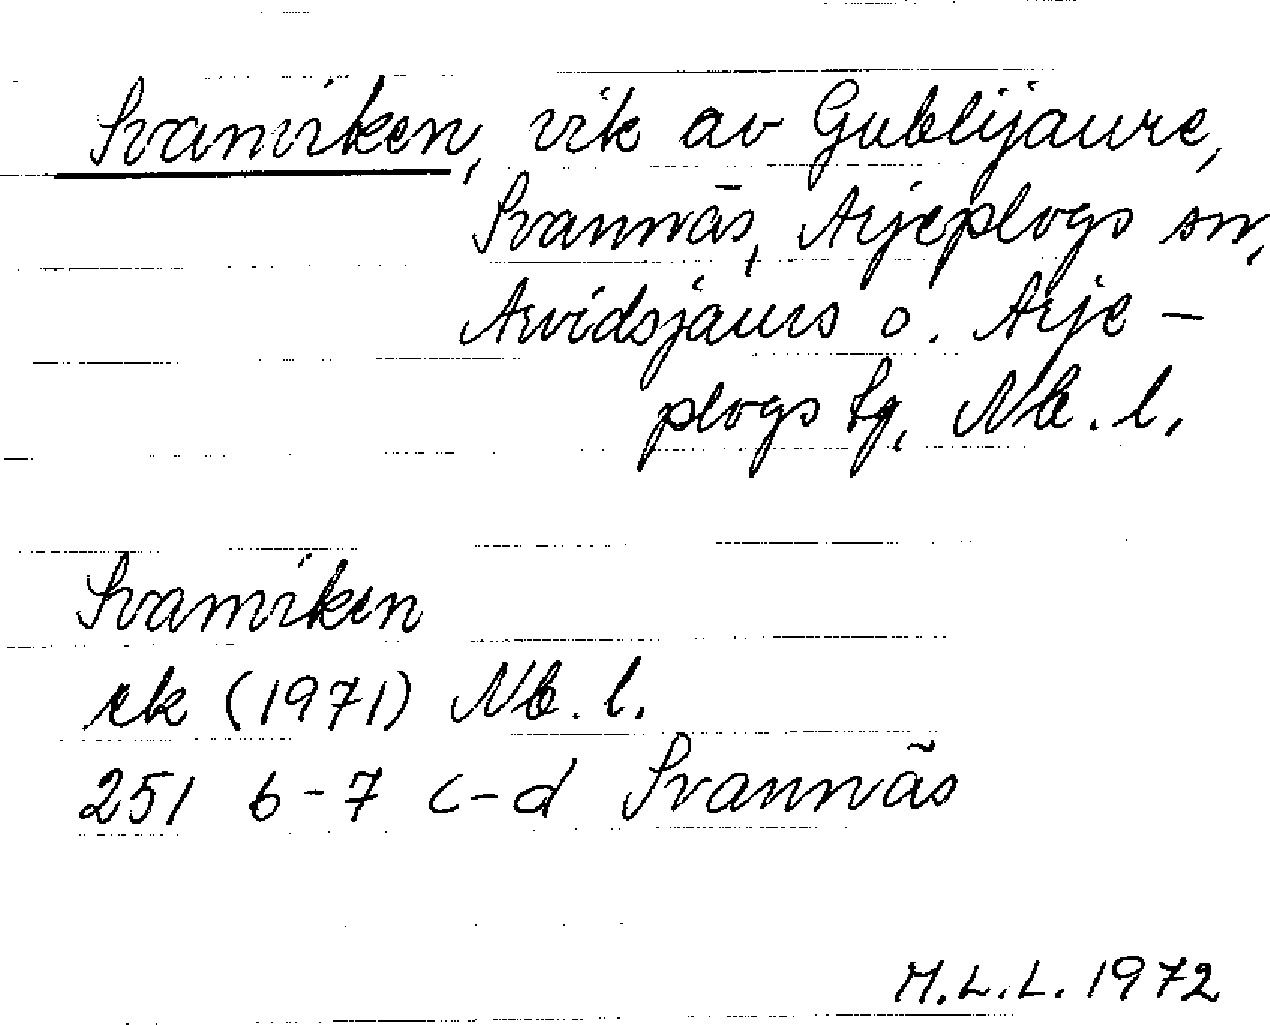 Svanviken, vik av Gublijaure,
Svannäs, Arjeplogs sn,
Arvidsjaurs o. Arje-
plogs tg, Nb. l.
Svanviken
ek (1971) Nb. l.
251 6-7 c-d Svannäs
M.L.L. 1972